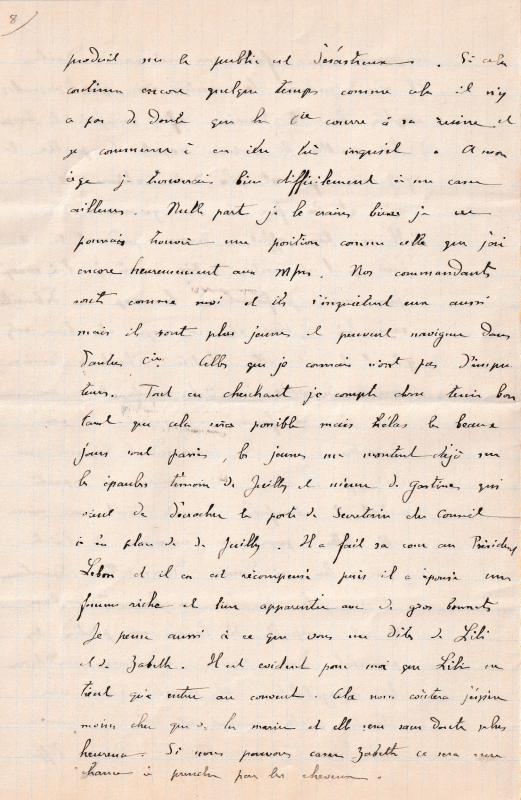 8
produit sur le public est désastreux. Si cela
continue encore quelque temps comme cela il n'y
a pas de doute que la Cie courre à sa ruine et
je commence à en être très inquiet. A mon
âge je trouverais bien difficilement à me caser
ailleurs. Nulle part je le crains bien je ne
pourrais trouver une position comme celle que j'ai
encore heureusement aux Mmes. Nos commandants
sont comme moi et ils s'inquiètent eux aussi
mais ils sont plus jeunes et peuvent naviguer dans
d'autres Cies. Celles que je connais n'ont pas
teurs. Tout en cherchant je compte donc tenir bon
tant que cela sera possible mais hélas les beaux
jours sont passés, les jeunes me montent déjà sur
les épaules témoin de Juilly et même de Gastines qui
vient de décrocher le poste de Secrétaire du Conseil
en place de de Juilly. Il a fait sa cour au Président
Lebon et il en est récompensé puis il a épousé une
femme riche et bien apparentée avec de gros bonnets
Je pense aussi à ce que vous me dites de Lili
et de Zabeth. Il est évident pour moi que Lili ne
tient qu'à entrer au couvent. Cela nous coûtera j'espère
moins cher que de la marier et elle sera sans doute plus
heureuse. Si nous pouvons caser Zabeth ce sera une
chance à prendre par les cheveux.